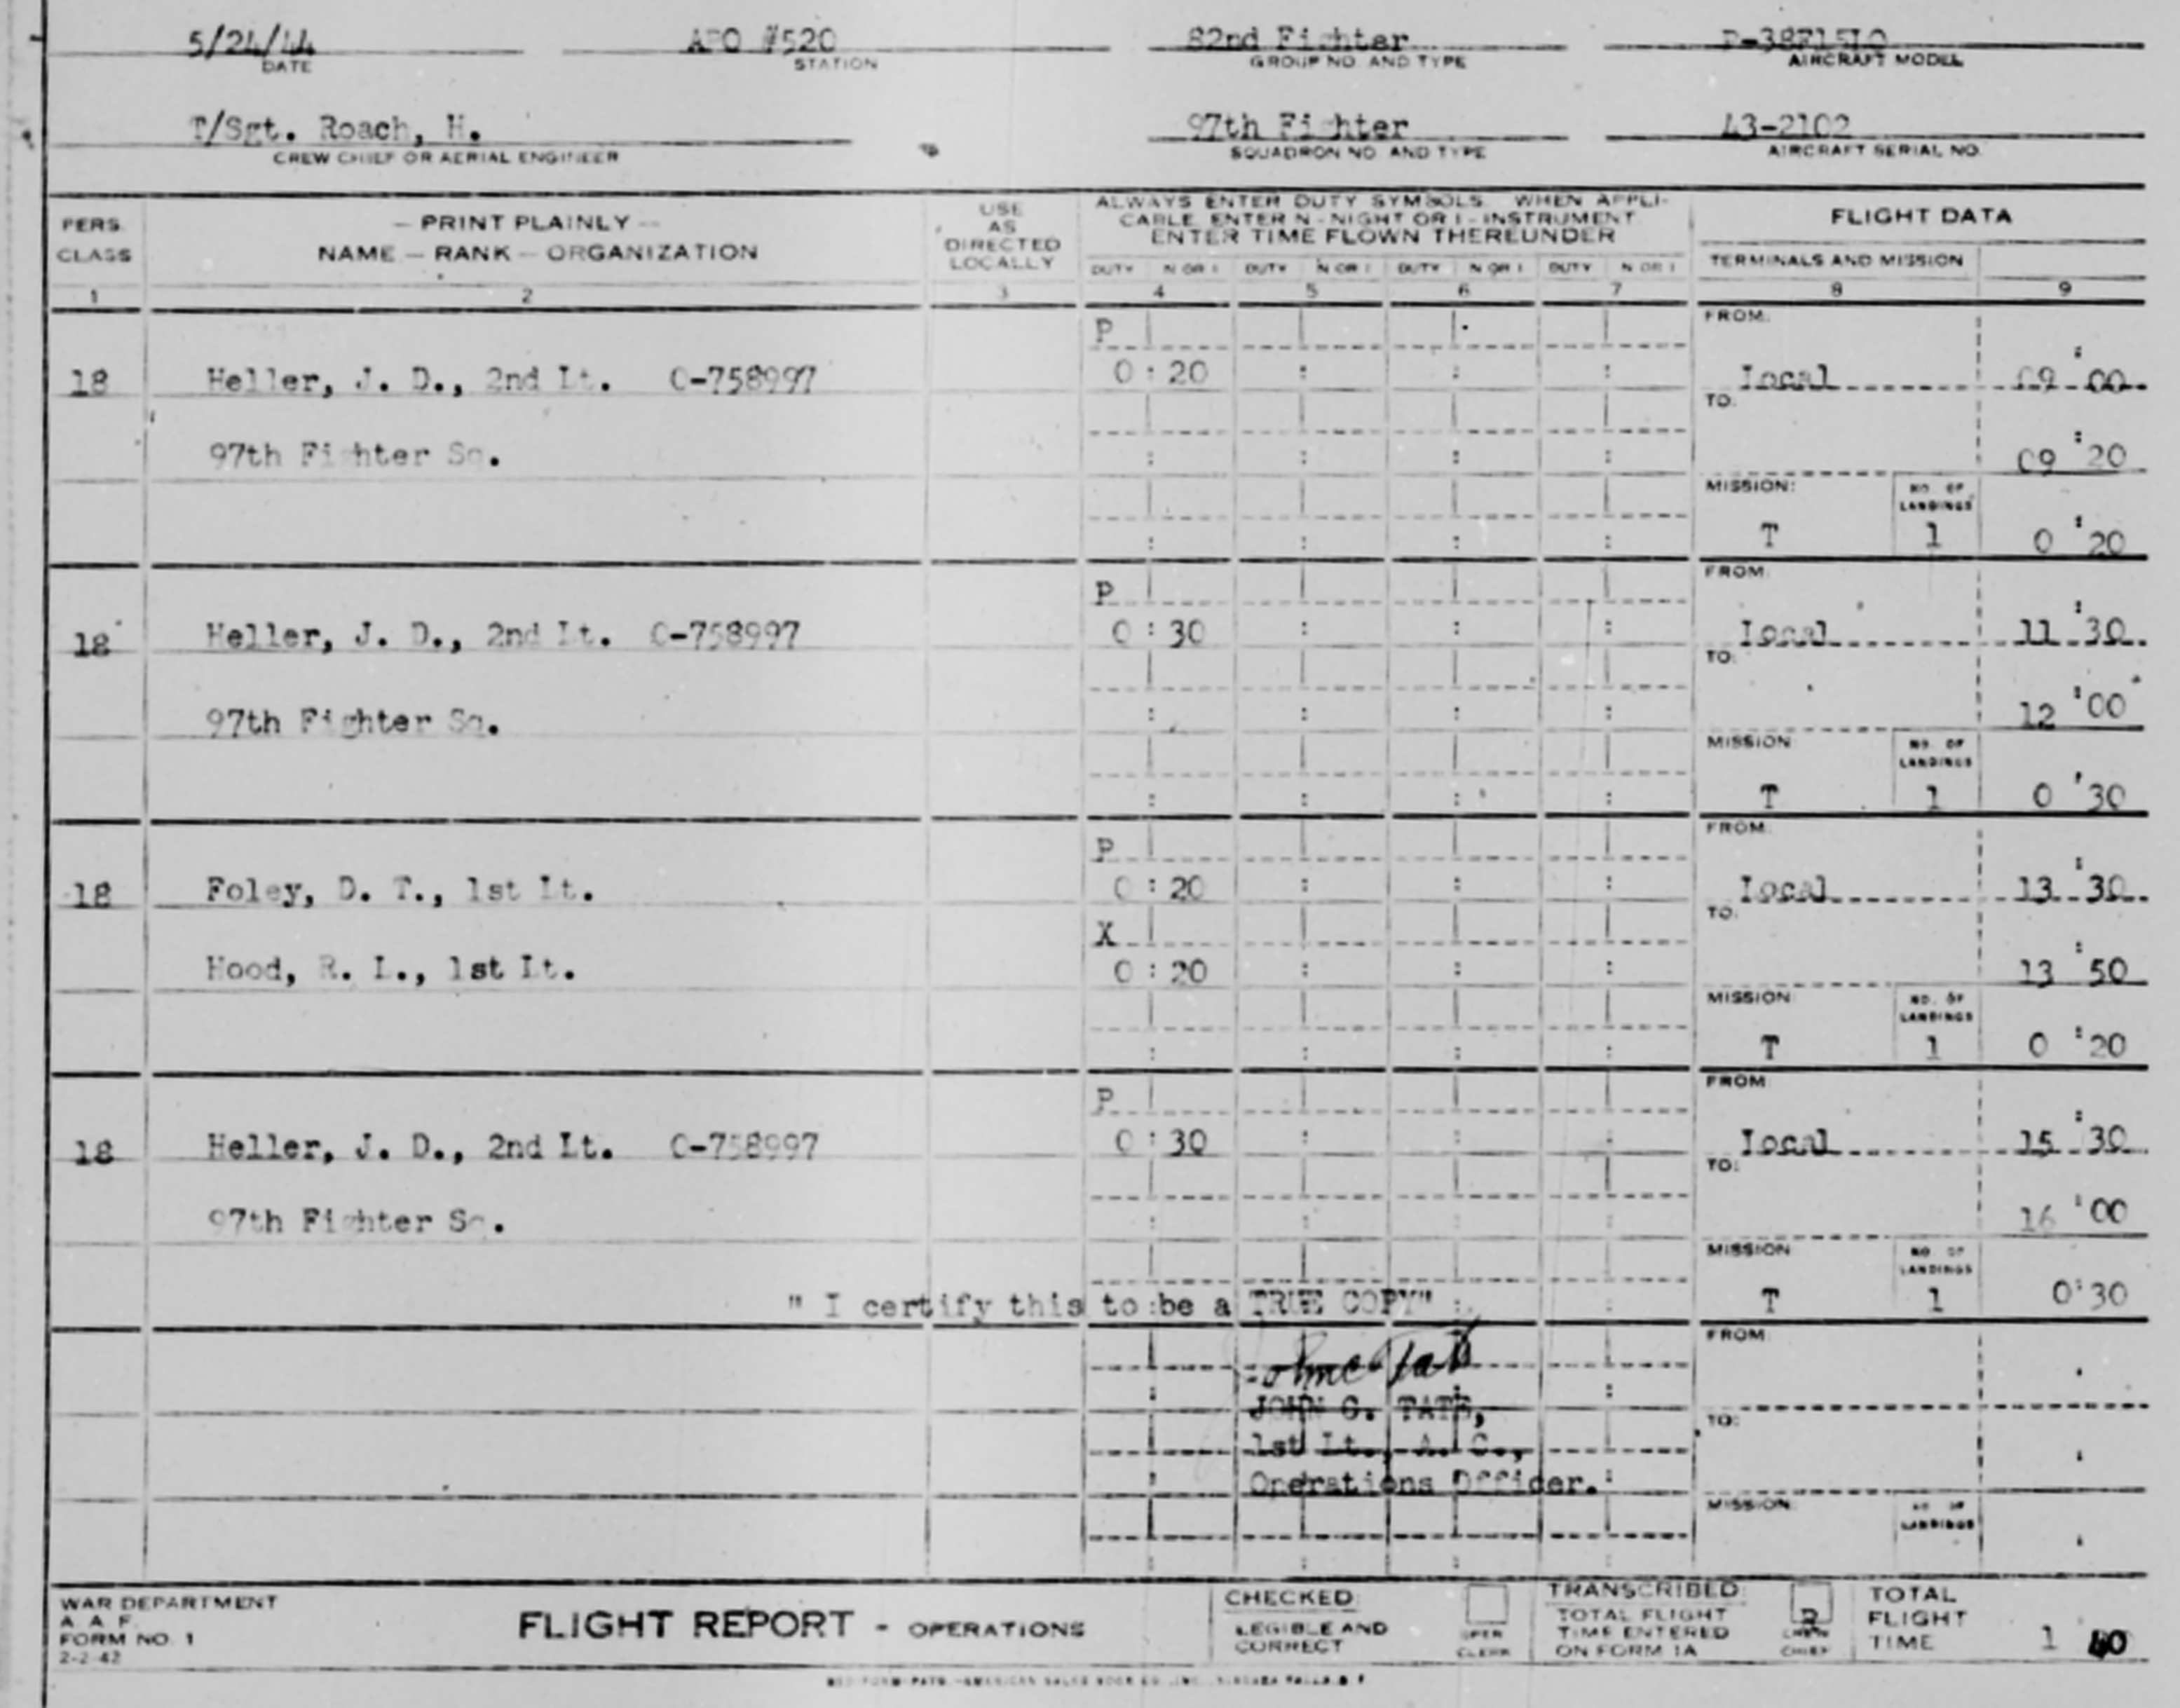 5/24/44 APO #520 82nd Fighter
DATE STATION GROUP NO. AND TYPE AIRCRAFT MODEL
T/Sgt. Roach, H. 97th Fighter 43-2102
CREW CHIEF OR AERIAL ENGINEER SQUADRON NO. AND TYPE AIRCRAFT SERIAL NO.
PERS. CLASS
— PRINT PLAINLY —
NAME — RANK — ORGANIZATION
USE AS DIRECTED LOCALLY
ALWAYS ENTER DUTY SYMBOLS. WHEN APPLI-
CABLE ENTER N - NIGHT OR I - INSTRUMENT
ENTER TIME FLOWN THEREUNDER
FLIGHT DATA
DUTY N OR I DUTY N OR I DUTY N OR I DUTY N OR I TERMINALS AND MISSION
1 2 3 4 5 6 7 8 9
P FROM:
18 Heller, J. D., 2nd Lt. O-758997 0:20 Local 09:00
TO:
97th Fighter Sq. 09:20
MISSION: NO. OF LANDINGS
T 1 0:20
P FROM:
18 Heller, J. D., 2nd Lt. O-758997 0:30 Local 11:30
TO:
97th Fighter Sq. 12:00
MISSION: NO. OF LANDINGS
T 1 0:30
P FROM:
18 Foley, D. T., 1st Lt. 0:20 Local 13:30
X TO:
Hood, R. L., 1st Lt. 0:20 13:50
MISSION: NO. OF LANDINGS
T 1 0:20
P FROM:
18 Heller, J. D., 2nd Lt. O-758997 0:30 Local 15:30
TO:
97th Fighter Sq. 16:00
MISSION: NO. OF LANDINGS
" I certify this to be a TRUE COPY" T 1 0:30
FROM:
JOHN C. TATE,
TO:
1st Lt., A. C.,
Operations Officer.
MISSION: NO. OF LANDINGS
WAR DEPARTMENT
A. A. F.
FORM NO. 1
2-2-42
FLIGHT REPORT - OPERATIONS
CHECKED:
LEGIBLE AND
CORRECT
OPER. CLERK
TRANSCRIBED:
TOTAL FLIGHT
TIME ENTERED
ON FORM 1A
CREW CHIEF
TOTAL
FLIGHT
TIME 1 40